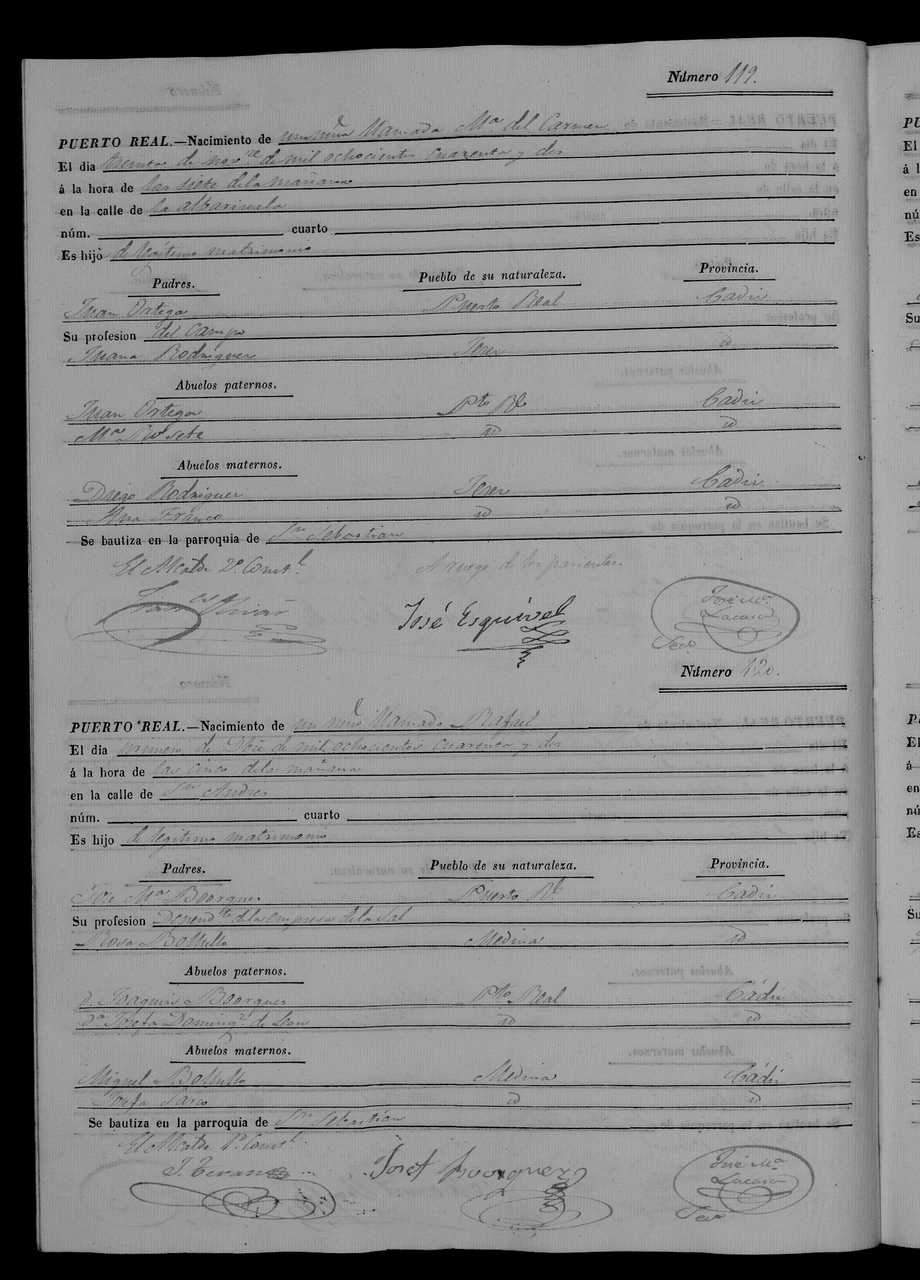 Número 119.
PUERTO REAL.—Nacimiento de una niña llamada Mª del Carmen
El dia treinta de novre de mil ochocientos cuarenta y dos
á la hora de las siete de la mañana
en la calle de la
núm. cuarto
Es hijo de legitimo matrimonio
Padres. Pueblo de su naturaleza. Provincia.
Juan Ortega Puerto Real Cadiz
Su profesion del Campo
Juana Rodriguez Jerez id
Abuelos paternos.
Juan Ortega Pto Rl Cadiz
Mª id id
Abuelos maternos.
Diego Rodriguez Jerez Cadiz
Ana Franco id id
Se bautiza en la parroquia de Sn Sebastian
El Alcalde 2º Constl. A ruego de los parientes
José Esquivel
José Mª
Lacaso
Srio
Número 120.
PUERTO REAL.—Nacimiento de un niño llamado Rafael
El dia primero de Dbre de mil ochocientos cuarenta y dos
á la hora de las cinco de la mañana
en la calle de Sn Andres
núm. cuarto
Es hijo de legitimo matrimonio
Padres. Pueblo de su naturaleza. Provincia.
Jose Mª Bohorquez Puerto Rl. Cadiz
Su profesion Dependte de la empresa de la Sal
Rosa Medina id
Abuelos paternos.
d. Joaquin Pto Real Cádiz
dª Josefa Doming.z de Leon id id
Abuelos maternos.
Miguel Medina Cádiz
Josefa id id
Se bautiza en la parroquia de Sn Sebastian
El Alcalde 1º Constl.
José Mª
Lacaso
Srio